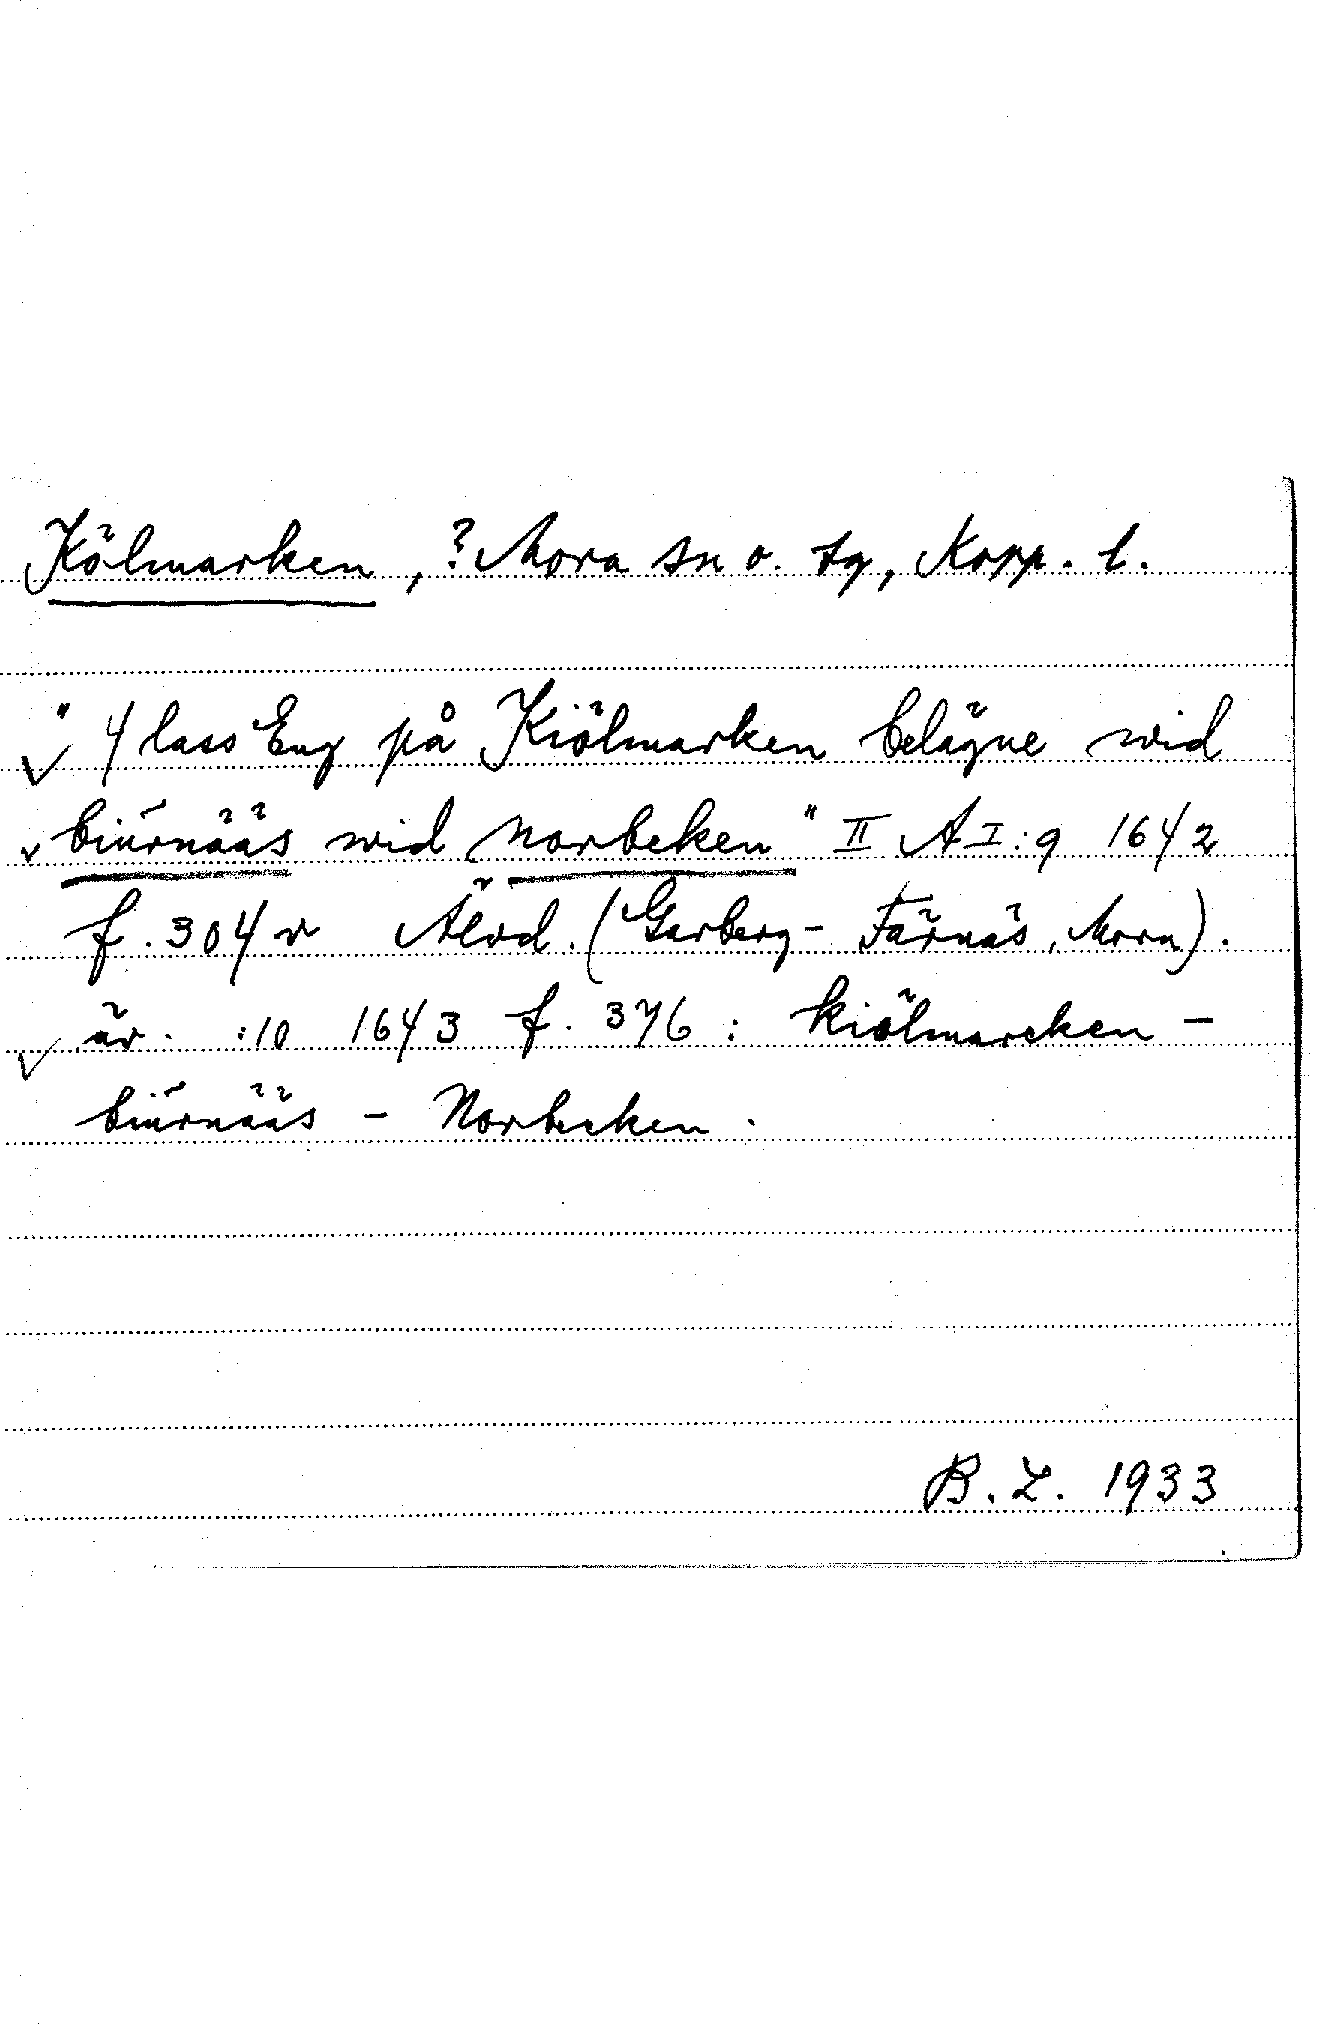 Kölmarken, ? Mora sn o. tg, Kopp. l.
"4 lass Eng på Kiölmarken belägne wid
biurnääs wid Norbeken" II A I:9 1642
f. 304 v Älvd. (Garberg - Färnäs, Mora).
äv. :10 1643 f. 376: kiölmarcken -
biurnääs - Norbecken.
B. L. 1933